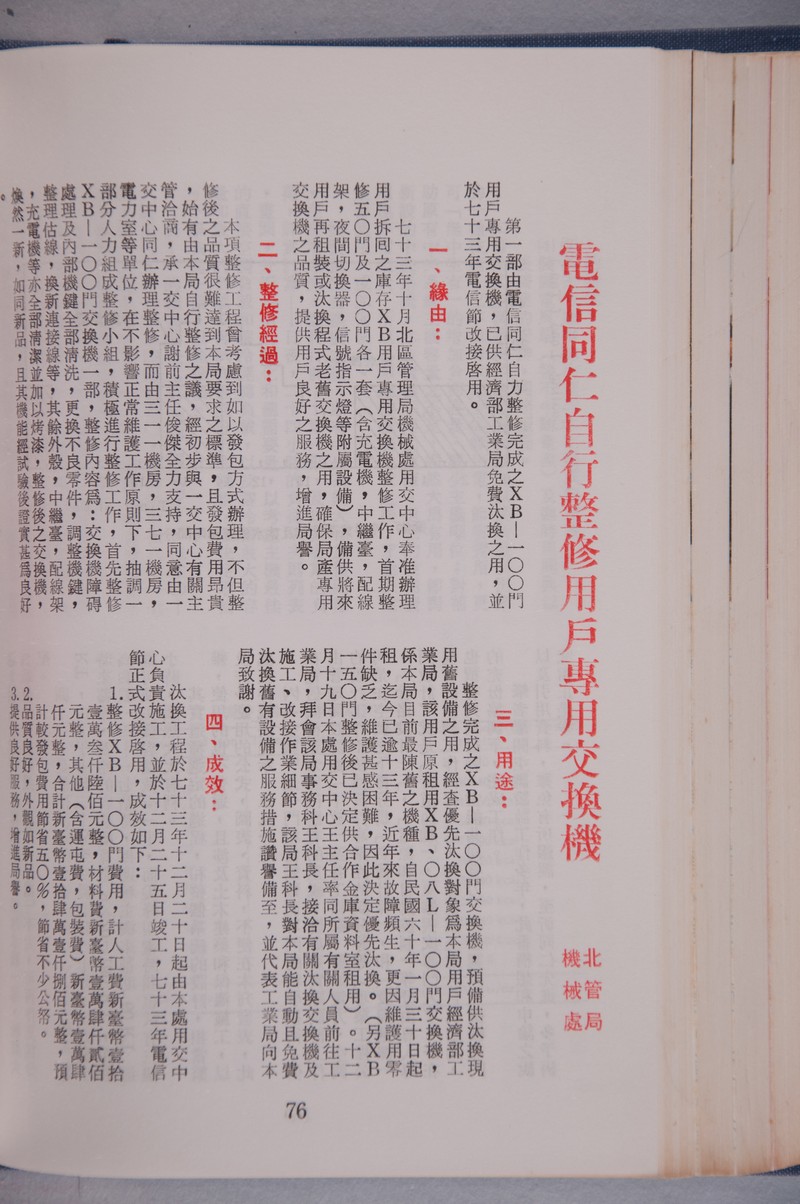 電信同仁自行整修用戶專用交換機
北管局
機械處
第一部由電信同仁自力整修完成之XB—一〇〇門
用戶專用交換機，已供經濟部工業局免費汰換之用，並
於七十三年電信節改接啓用。
一、緣由：
七十三年十月北區管理局機械處用交中心奉准辦理
用戶拆回之庫存XB用戶專用交換機整修工作，首期整
修五〇門及一〇〇門各一套（含充電機，中繼臺，配線
架，夜間切換器，信號指示燈等附屬設備），備供將來
用戶再租裝或汰換程式老舊交換機之用，確保局產專用
交換機之品質，提供用戶良好之服務，增進局譽。
二、整修經過：
本項整修工程曾考慮到如以發包方式辦理，不但整
修後之品質很難達到本局要求之標準，且發包費用昂貴
，始有由本局自行整修之議，經初步與一交中心有關主
管洽商，承一交中心謝前主任俊傑全力支持，同意由一
交中心同仁辦理整修，而由三一一機房，三七一機房，
電力室等單位，在不影響正常維護工作原則下，抽調一
部分人力組成整修小組，積極進行整修工作，首先整修
XB—一〇〇門交換機一部，整修內容爲：交換機障碍
處理及內部機鍵全部清洗，更換不良零件，調整機鍵，
整理估線，換新連接線等，其餘外殼，中繼臺，配線架
，充電機等亦全部清潔並加以烤漆，整修後之交換機，
煥然一新，如同新品，且其機能經試驗後證實甚爲良好
。
三、用途：
整修完成之XB—一〇〇門交換機，預備供汰換現
用舊設備之用，經查優先汰換對象爲本局用戶經濟部工
業局，該用戶原租用XB、〇八L—一〇〇門交換機，
係本局目前最陳舊之機種，自民國六十年一月三十日起
租，迄今已逾十三年，近年來故障頻生，更因維護用零
件缺乏，維護甚感困難，因此決定優先汰換。（另XB
一五〇門整修後已決定供合作金庫資料室租用）。十二
月十九日本處用交中心王主任率同所屬有關人員前往工
業局，拜會該局事務科王科長，接洽有關汰換交換機及
施工、改接作業細節，該局王科長對本局能自動且免費
汰換舊有設備之服務措施讚譽備至，並代表工業局向本
局致謝。
四、成效：
汰換工程於七十三年十二月二十日起由本處用交中
心負責施工，並於十二月二十五日竣工，七十三年電信
節正式改接啓用，成效如下：
1.整修XB—一〇〇門費用，計人工費新臺幣壹拾
壹萬叁仟陸佰元整，材料費新臺幣壹萬肆仟貳佰
元整，其他（含運屯費，包裝費）新臺幣壹萬肆
仟元整，合計新臺幣壹拾肆萬壹仟捌佰元整，預
計較發包費用節省五〇％，節省不少公帑。
2.品質良好，外觀如新品。
3.提供良好服務，增進局譽。
76